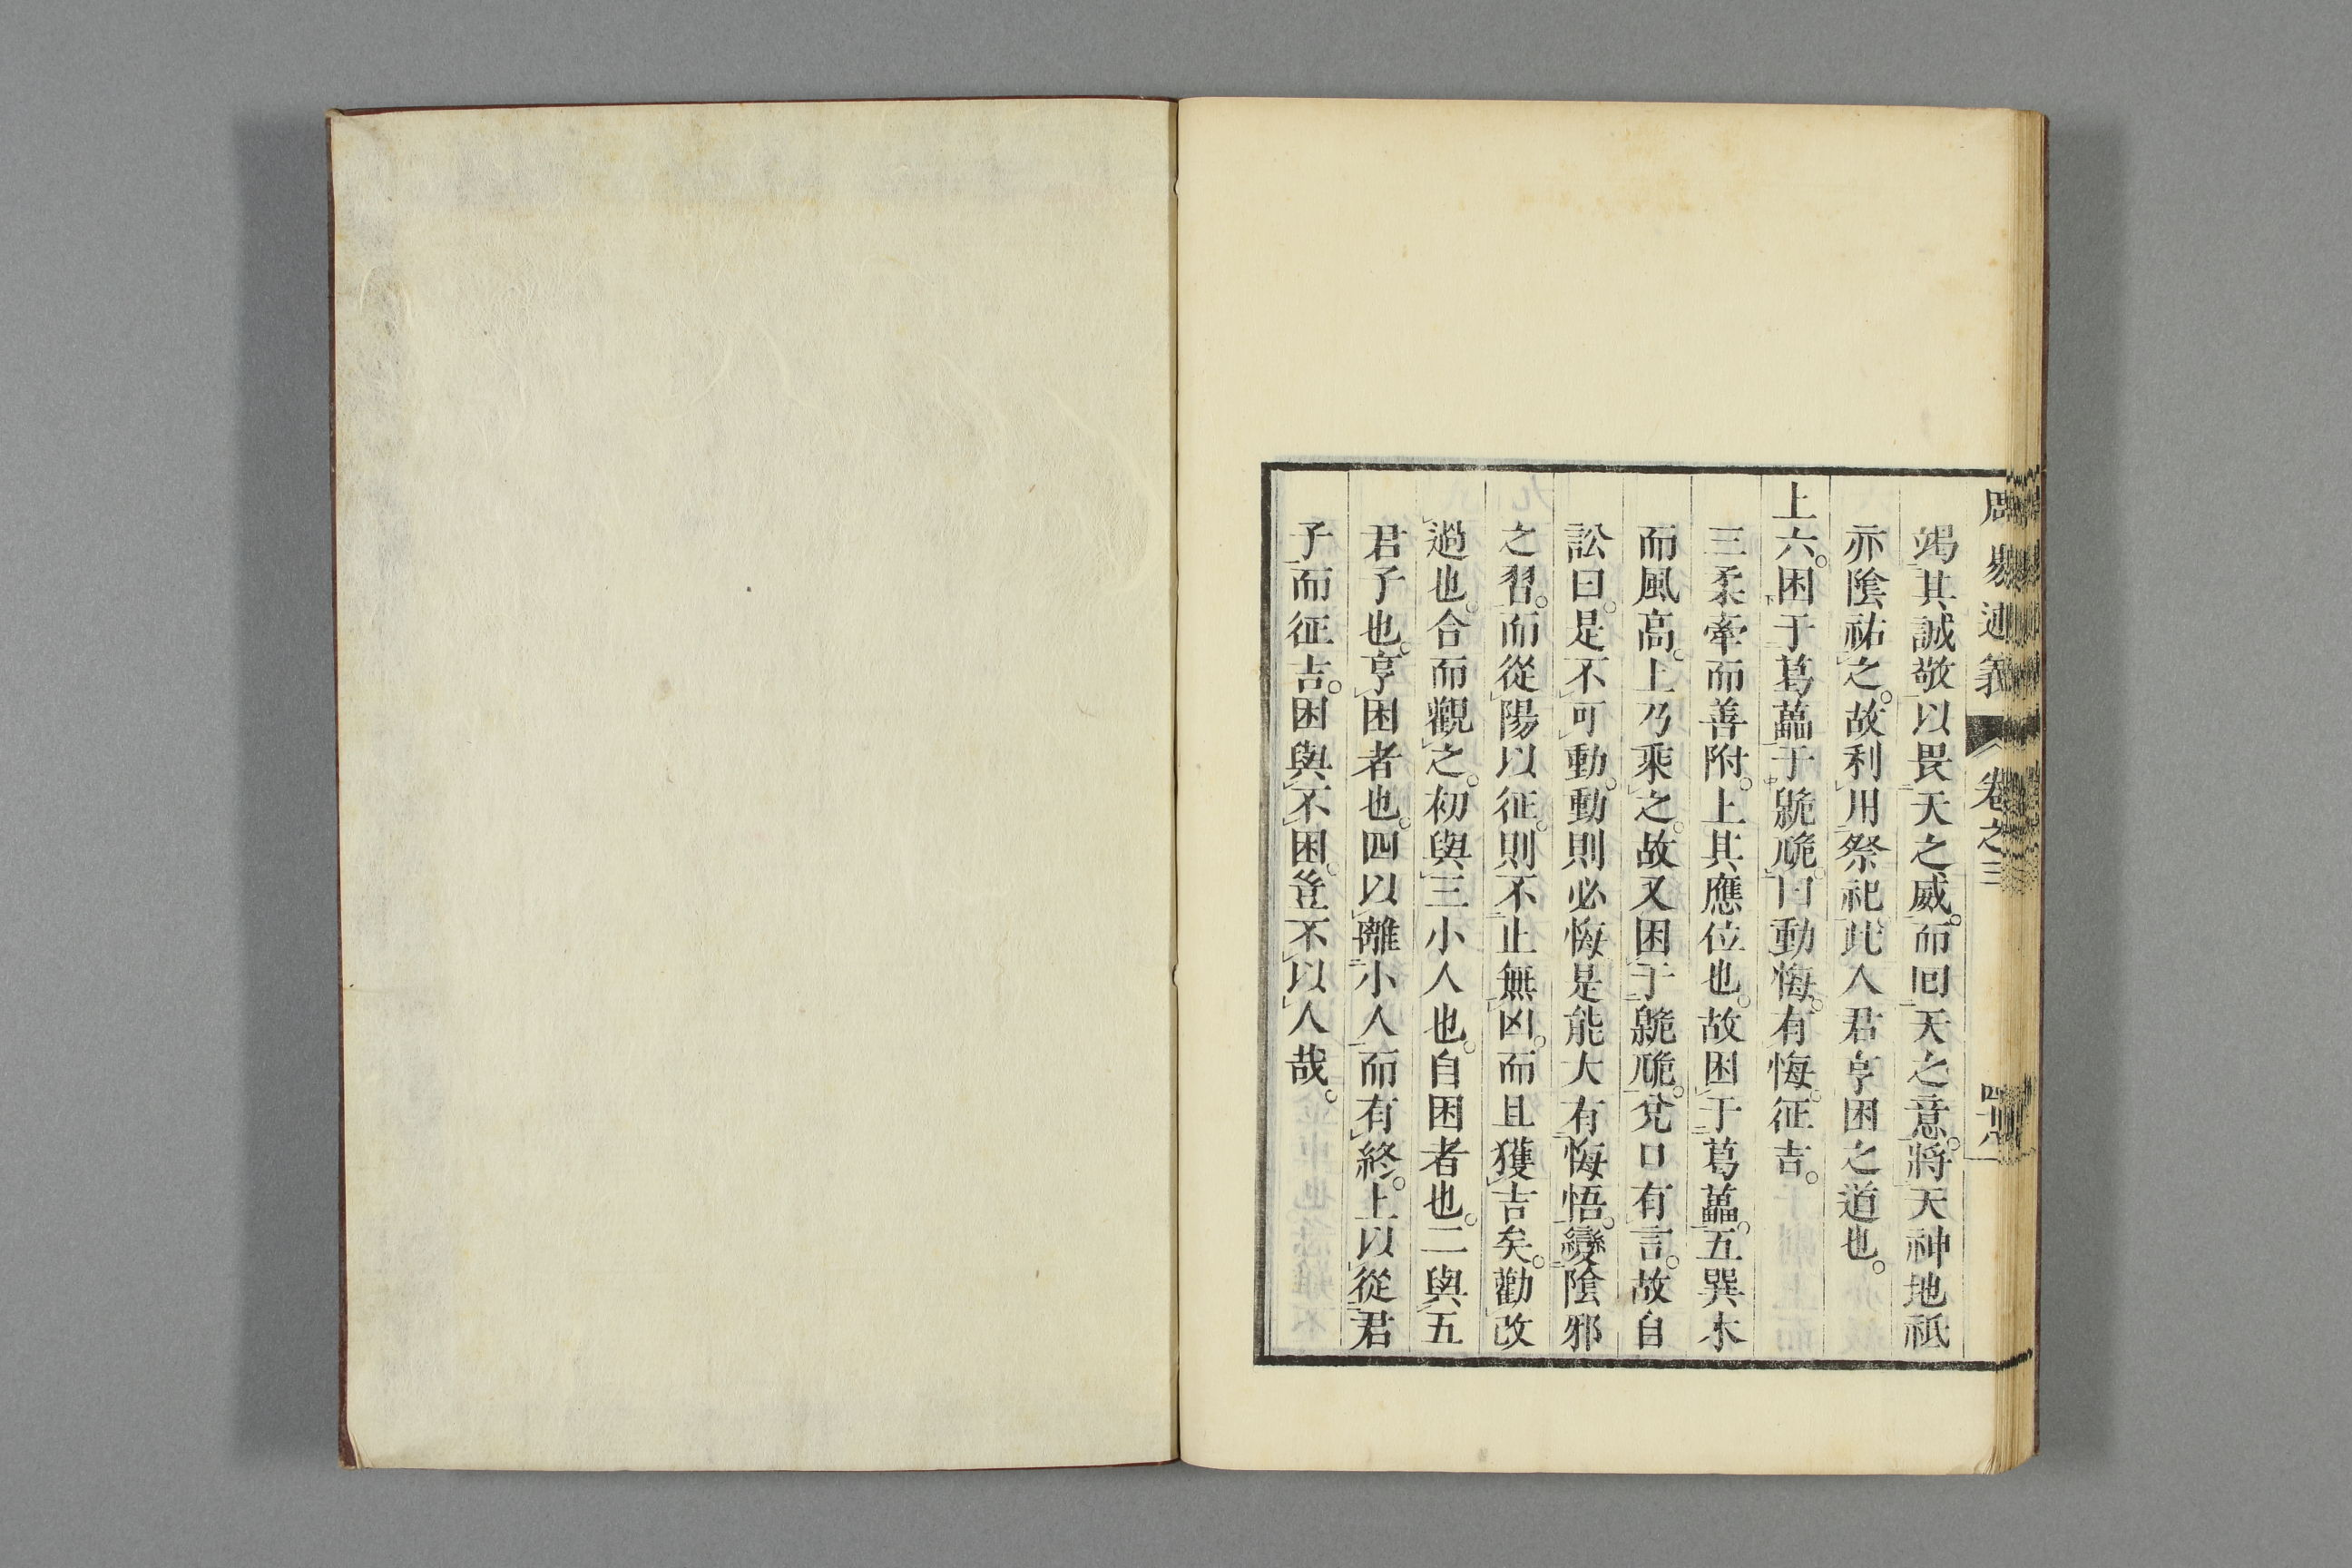 周易述義 卷之三 四十八
竭其誠敬以畏天之威。而回天之意。將天神地祇
亦隂祐之。故利用祭祀。此人君亨困之道也。
上六。困于葛藟于臲卼。曰動悔。有悔。征吉。
三柔牽而善附。上其應位也。故困于葛藟。五巽木
而風高。上乃乘之。故又困于臲卼。兌口有言。故自
訟曰。是不可動。動則必悔是能大有悔悟。變隂邪
之習。而從陽以征。則不止無凶。而且獲吉矣。勸改
過也。合而觀之。初與三小人也。自困者也。二與五
君子也。亨困者也。四以離小人而有終。上以從君
子而征吉。困與不困。豈不以人哉。